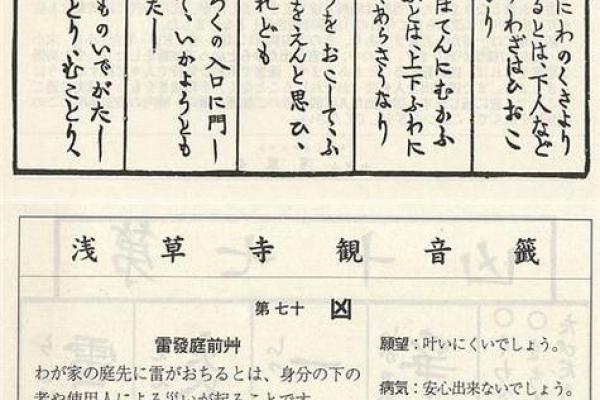 にわのくさより
るとは、下人など
わざはひおこ
り
はてんにむかふ
とは、上下ふわに
あらさうなり
をおこして、ふ
をえんと思ひ、
れども
つくの入口に門
く、いかようとも
たし
ものいでがたし
とり、むことり、
浅草寺観音籤
第七十 凶
雷發庭前艸
わが家の庭先に雷がおちるとは、身分の下の
者や使用人による災いが起ることです。
願望：叶いにくいでしょう。
病気：安心出来ないでしょう。